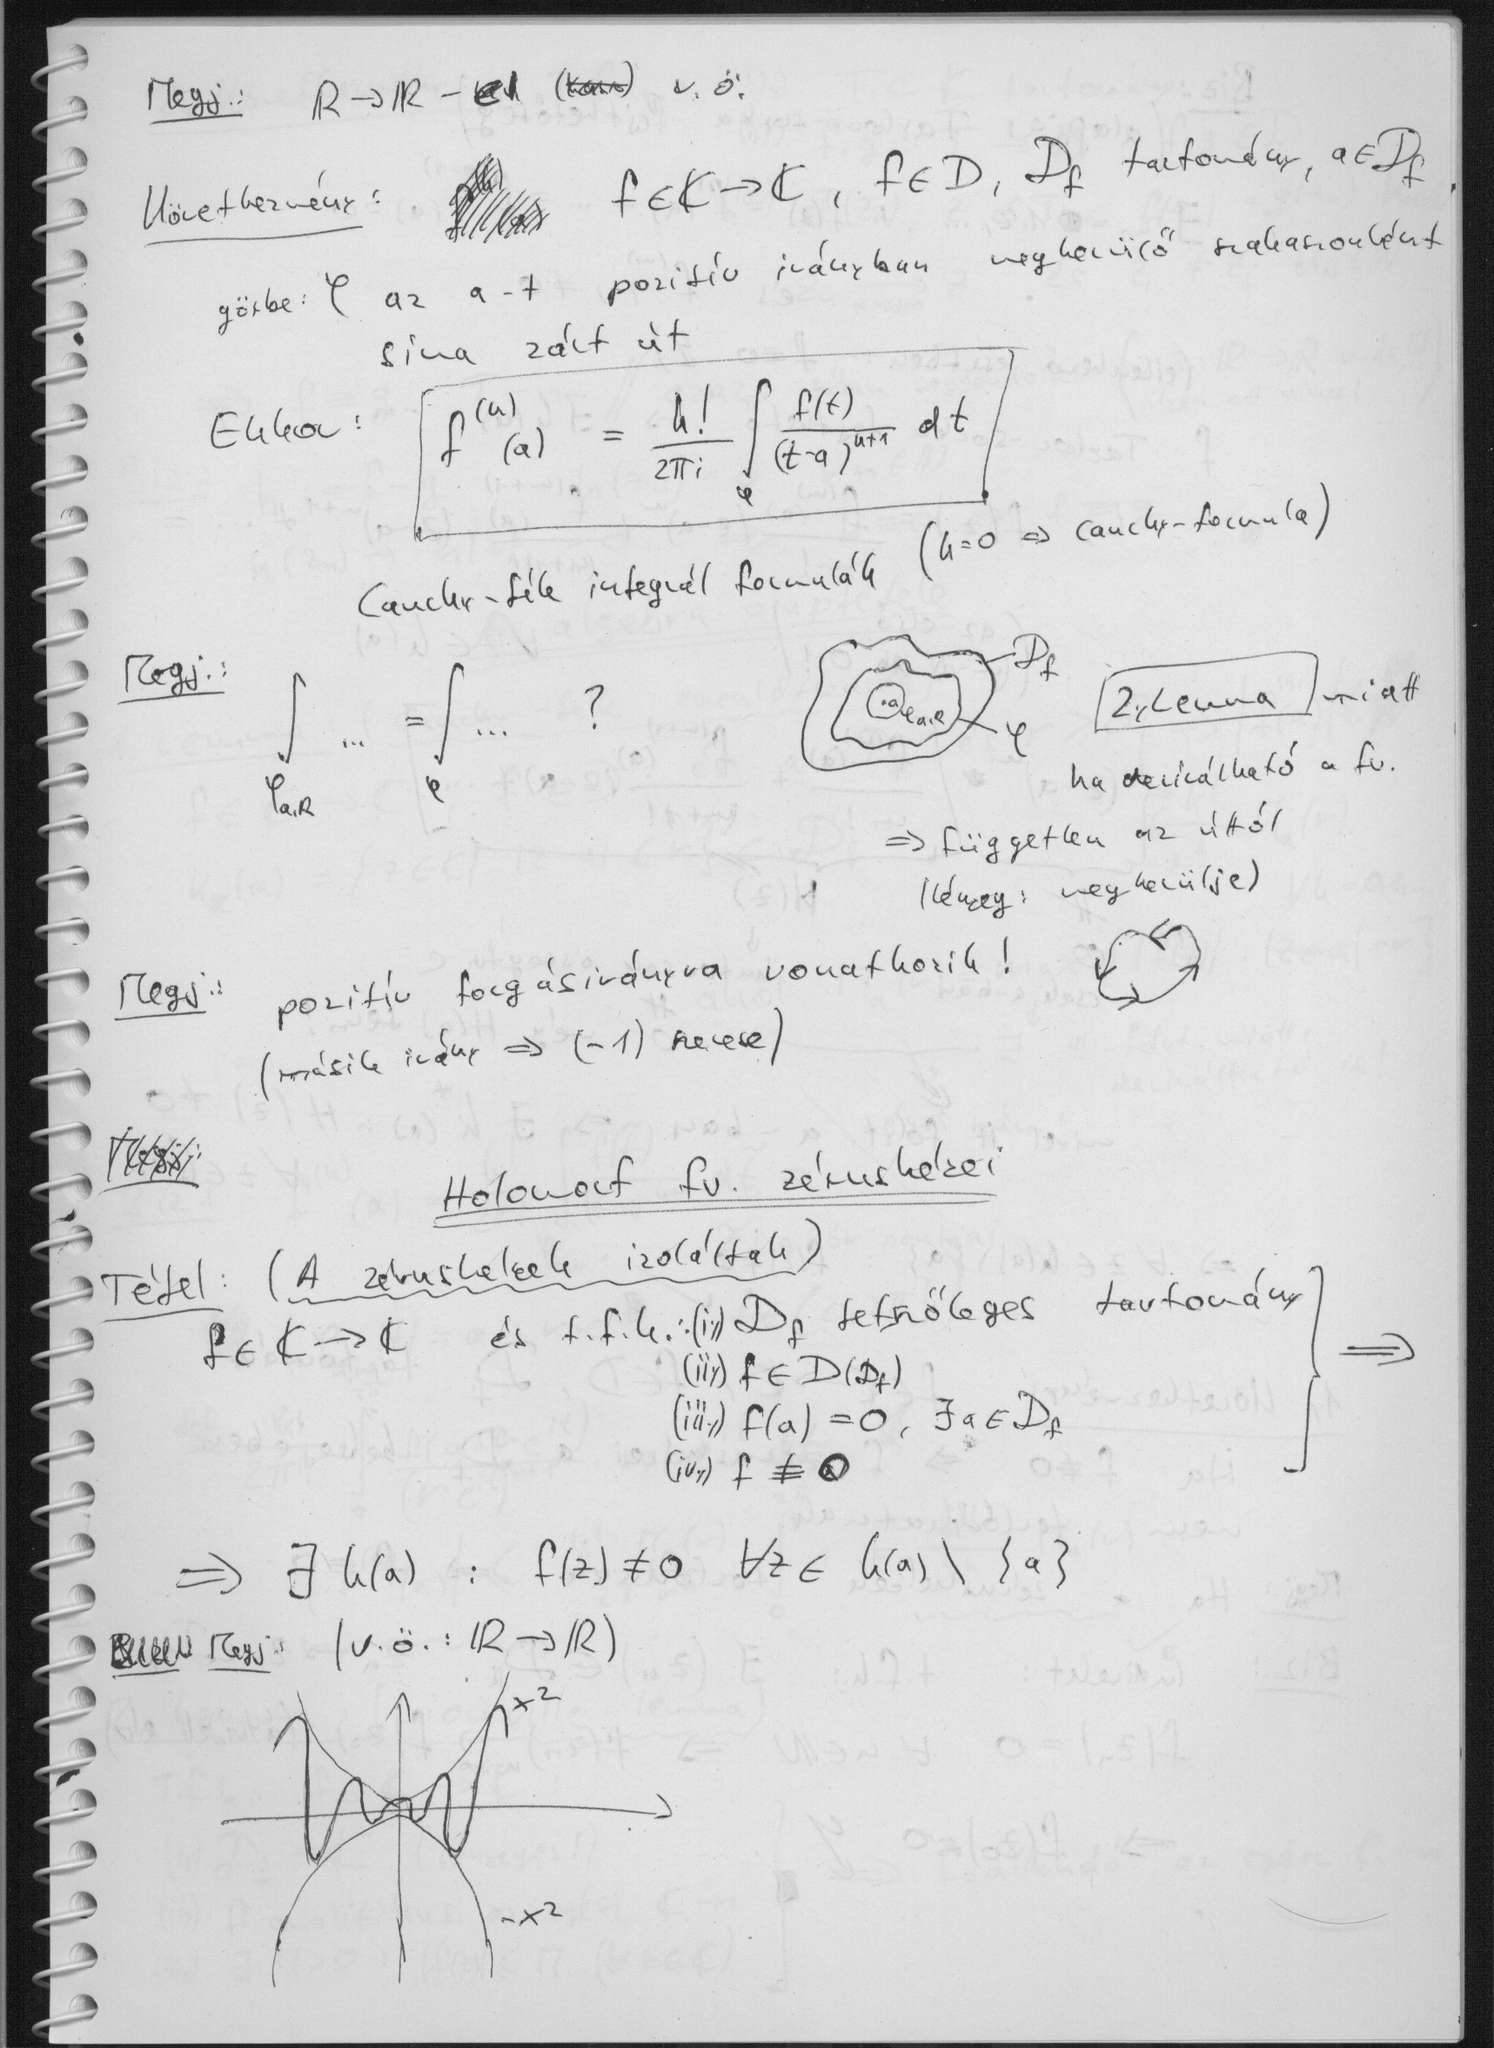 Megj.: ℝ → ℝ - el v. ö.
Következmény: f ∈ ℂ → ℂ, f ∈ D, D_f tartomány, a ∈ D_f,
görbe: φ az a-t pozitív irányban megkerülő szakaszonként
sima zárt út
Ekkor: f^(k)(a) = k!/(2πi) ∫_φ f(t)/(t-a)^(k+1) dt
Cauchy-féle integrál formulák (k=0 ⇒ Cauchy-formula)
Megj.: ∫_φa,R ... = ∫_φ ... ?
D_f
·a
φa,R
φ
2, Lemma miatt
ha deriválható a fv.
⇒ független az úttól
(lényeg: megkerülje)
Megj.: pozitív forgásirányra vonatkozik!
(másik irány ⇒ (-1) szerese)
Holomorf fv. zérushelyei
Tétel: (A zérushelyek izoláltak)
f ∈ ℂ → ℂ és t.f.h.: (i,) D_f tetszőleges tartomány
(ii,) f ∈ D(D_f)
(iii,) f(a) = 0, ∃a ∈ D_f
(iv,) f ≢ 0
⇒
⇒ ∃ k(a) : f(z) ≠ 0 ∀z ∈ k(a) \ {a}
Megj.: (v.ö.: ℝ → ℝ)
x²
-x²